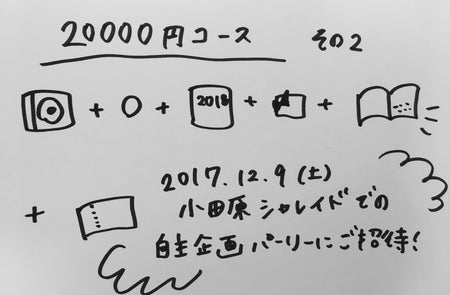 20000円コース その2
+ 〇 + 2018 + +
+
2017.12.9 (土)
小田原シャレイドでの
自主企画パーリーにご招待!